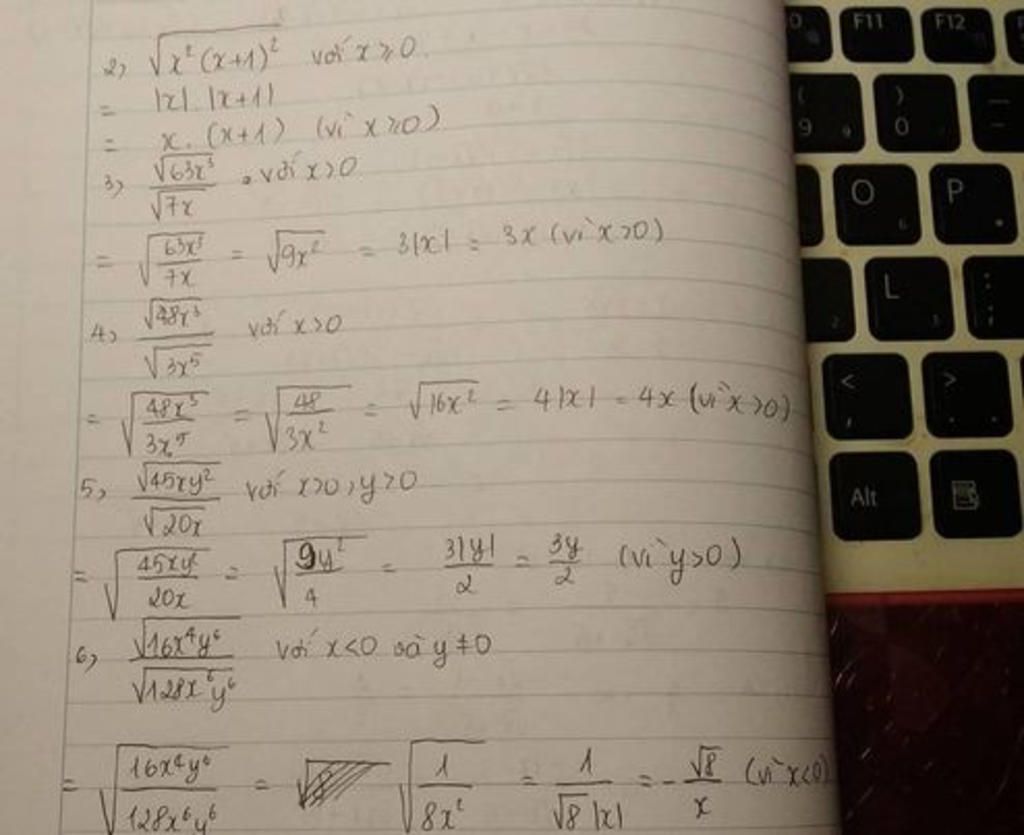 2) √(x²(x+1)²) với x ≥ 0.
= |x|.|x+1|
= x.(x+1) (vì x ≥ 0)
3) √(63x³)/√(7x) với x>0
= √(63x³/7x) = √(9x²) = 3|x| = 3x (vì x>0)
4) √(48x³)/√(3x⁵) với x>0
= √(48x³/3x⁵) = √(48/3x²) = √(16x²) = 4|x| = 4x (vì x>0)
5) √(45xy²)/√(20x) với x>0, y>0
= √(45xy²/20x) = √(9y²/4) = 3|y|/2 = 3y/2 (vì y>0)
6) √(16x⁴y⁶)/√(128x⁶y⁶) với x<0 và y≠0
= √(16x⁴y⁶/128x⁶y⁶) = √(1/8x²) = 1/(√8|x|) = -√8/x (vì x<0)
F11
F12
(
9
)
0
O
P
L
<
,
>
.
Alt